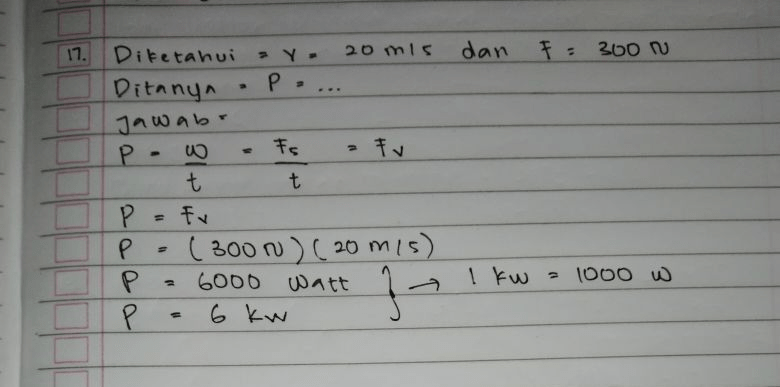 17. Diketahui = v = 20 m/s dan F = 300 N
Ditanya = P = ...
Jawab =
P = W/t = Fs/t = Fv
P = Fv
P = (300 N) (20 m/s)
P = 6000 watt } → 1 kW = 1000 W
P = 6 kW